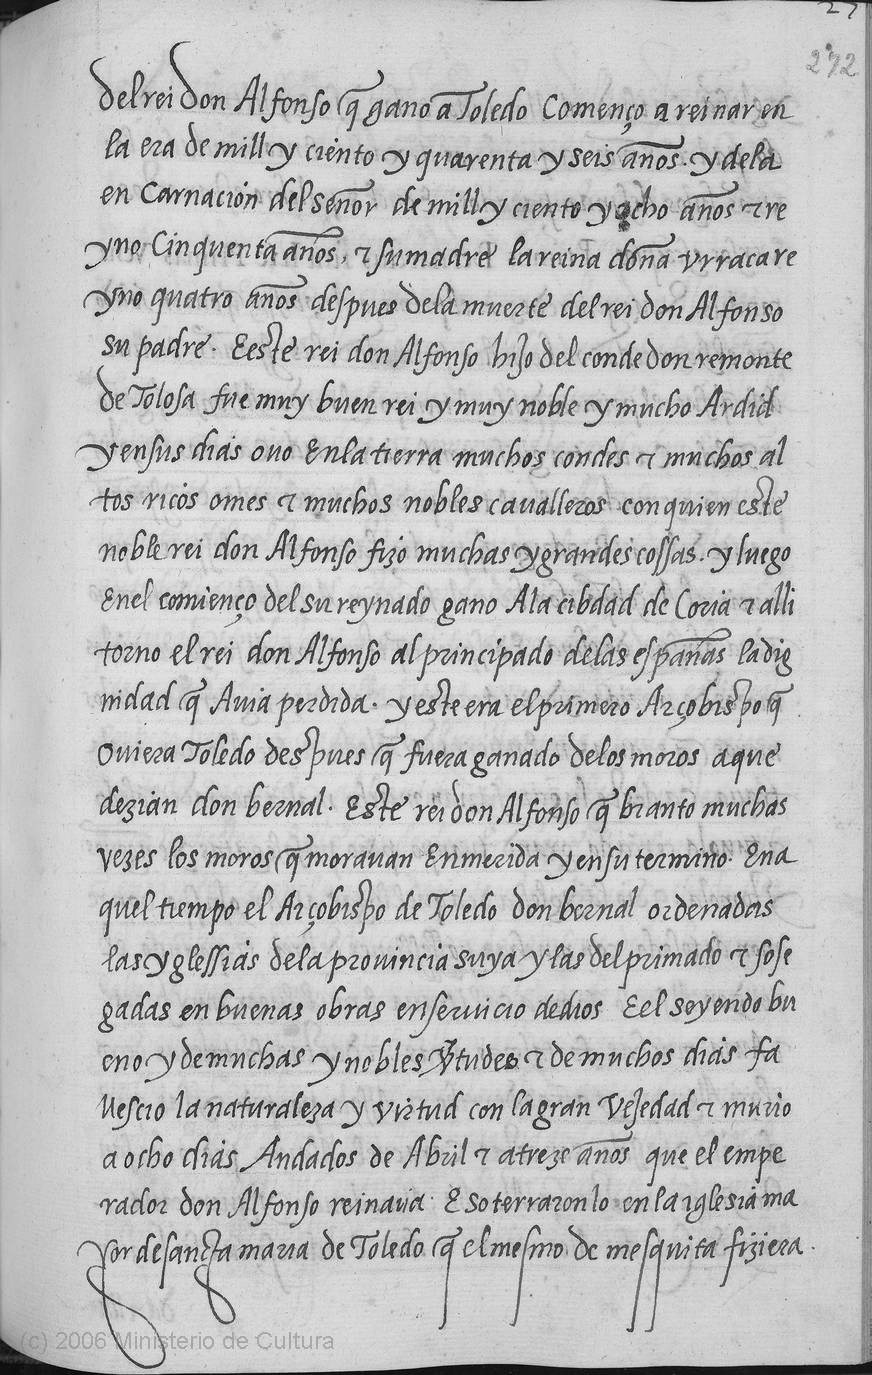 27
272
del rei don Alfonso q̃ gano a Toledo Començo a reinar en
la era de mill y ciento y quarenta y seis años. y dela
en Carnación del señor de mill y ciento y ocho años ⁊ re
yno Cinquenta años, ⁊ su madre la reina doña vrraca re
yno quatro años despues dela muerte del rei don Alfonso
su padre. Eeste rei don Alfonso hijo del conde don remonte
de Tolosa fue muy buen rei y muy noble y mucho Ardid
y ensus dias ovo Enla tierra muchos condes ⁊ muchos al
tos ricos omes ⁊ muchos nobles cavalleros con quien este
noble rei don Alfonso fizo muchas y grandes cossas. y luego
Enel comienço del su reynado gano Ala cibdad de Coria ⁊ alli
torno el rei don Alfonso al principado delas españas la dig
nidad q̃ Auia perdida. y este era el primero Arçobispo q̃
Oviera Toledo despues q̃ fuera ganado delos moros a que
dezian don bernal. Este rei don Alfonso q̃ branto muchas
vezes los moros q̃ moravan Enmerida y ensu termino. Ena
quel tiempo el Arçobispo de Toledo don bernal ordenadas
las yglessias dela provincia suya y las del primado ⁊ sose
gadas en buenas obras enservicio dedios Eel seyendo bu
eno y de muchas y nobles v̾tudes ⁊ de muchos dias fa
llescio la naturaleza y virtud con la gran Vejedad ⁊ murio
a ocho dias Andados de Abril ⁊ a treze años que el empe
rador don Alfonso reinaua Esoterraronlo en la iglesia ma
yor de sancta maria de Toledo q̃ el mesmo de mesquita fiziera.
(c) 2006 Ministerio de Cultura